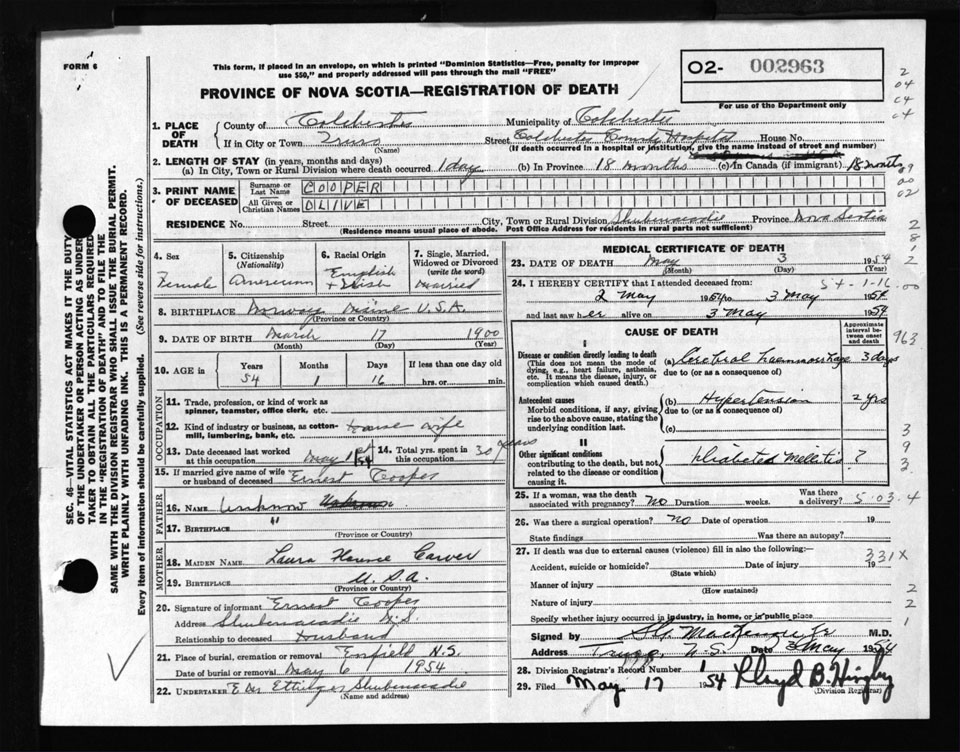 FORM 6
This form, if placed in an envelope, on which is printed "Dominion Statistics—Free, penalty for improper
use $50," and properly addressed will pass through the mail "FREE"
PROVINCE OF NOVA SCOTIA—REGISTRATION OF DEATH
O2- 002963
For use of the Department only
1. PLACE OF DEATH
County of Colchester Municipality of Colchester
If in City or Town Truro Street Colchester County Hospital House No.
(Name) (If death occurred in a hospital or institution, give the name instead of street and number)
2. LENGTH OF STAY (in years, months and days)
(a) In City, Town or Rural Division where death occurred 1 day (b) In Province 18 months (c) In Canada (if immigrant) 18 months
3. PRINT NAME OF DECEASED
Surname or Last Name COOPER
All Given or Christian Names OLIVE
RESIDENCE No. Street City, Town or Rural Division Shubenacadie Province Nova Scotia
(Residence means usual place of abode. Post Office Address for residents in rural parts not sufficient)
4. Sex
Female
5. Citizenship
(Nationality)
American
6. Racial Origin
English
+ Irish
7. Single, Married,
Widowed or Divorced
(write the word)
Married
8. BIRTHPLACE Norway Maine U.S.A.
(Province or Country)
9. DATE OF BIRTH March 17 1900
(Month) (Day) (Year)
10. AGE in Years Months Days If less than one day old
54 1 16 hrs. or min.
OCCUPATION
11. Trade, profession, or kind of work as
spinner, teamster, office clerk, etc.
12. Kind of industry or business, as cotton-
mill, lumbering, bank, etc. House wife
13. Date deceased last worked
at this occupation May 1st 54
14. Total yrs. spent in
this occupation 30 years
15. If married give name of wife
or husband of deceased Ernest Cooper
FATHER
16. NAME Unknow
17. BIRTHPLACE "
(Province or Country)
MOTHER
18. MAIDEN NAME Laura Carver
19. BIRTHPLACE U.S.A.
(Province or Country)
20. Signature of informant Ernest Cooper
Address Shubenacadie N.S.
Relationship to deceased Housband
21. Place of burial, cremation or removal Enfield N.S.
Date of burial or removal May 6 1954
22. UNDERTAKER Shubenacadie
(Name and address)
MEDICAL CERTIFICATE OF DEATH
23. DATE OF DEATH May 3 1954
(Month) (Day) (Year)
24. I HEREBY CERTIFY that I attended deceased from:
54-1-16
2 May 1954 to 3 May 1954
and last saw her alive on 3 May 1954
CAUSE OF DEATH
Approximate
interval between
onset
and death
I
Disease or condition directly leading to death
(This does not mean the mode of
dying, e.g., heart failure, asthenia,
etc. It means the disease, injury, or
complication which caused death.)
(a) Cerebral haemorrhage 3 days
due to (or as a consequence of)
Antecedent causes
Morbid conditions, if any, giving
rise to the above cause, stating the
underlying condition last.
(b) Hypertension 2 yrs
due to (or as a consequence of)
(c)
II
Other significant conditions
contributing to the death, but not
related to the disease or condition
causing it.
Diabetes Mellitis ?
25. If a woman, was the death
associated with pregnancy? NO Duration weeks. Was there
a delivery? 5.03.4
26. Was there a surgical operation? NO Date of operation 19
State findings Was there an autopsy?
27. If death was due to external causes (violence) fill in also the following:— 331X
Accident, suicide or homicide? Date of injury 19
(State which)
Manner of injury
(How sustained)
Nature of injury
Specify whether injury occurred in industry, in home, or in public place
Signed by MacKenzie Jr M.D.
Address Truro, N.S. Date 3 May 1954
28. Division Registrar's Record Number 1
29. Filed May 17 1954 Lloyd B.
(Division Registrar)
SEC. 46—VITAL STATISTICS ACT MAKES IT THE DUTY
OF THE UNDERTAKER OR PERSON ACTING AS UNDER-
TAKER TO OBTAIN ALL THE PARTICULARS REQUIRED
IN THE "REGISTRATION OF DEATH" AND TO FILE THE
SAME WITH THE DIVISION REGISTRAR WHO SHALL ISSUE THE BURIAL PERMIT.
WRITE PLAINLY WITH UNFADING INK. THIS IS A PERMANENT RECORD.
Every item of information should be carefully supplied. (See reverse side for instructions.)
2
04
C4
02
2
8
1
2
00
963
3
9
3
2
2
1